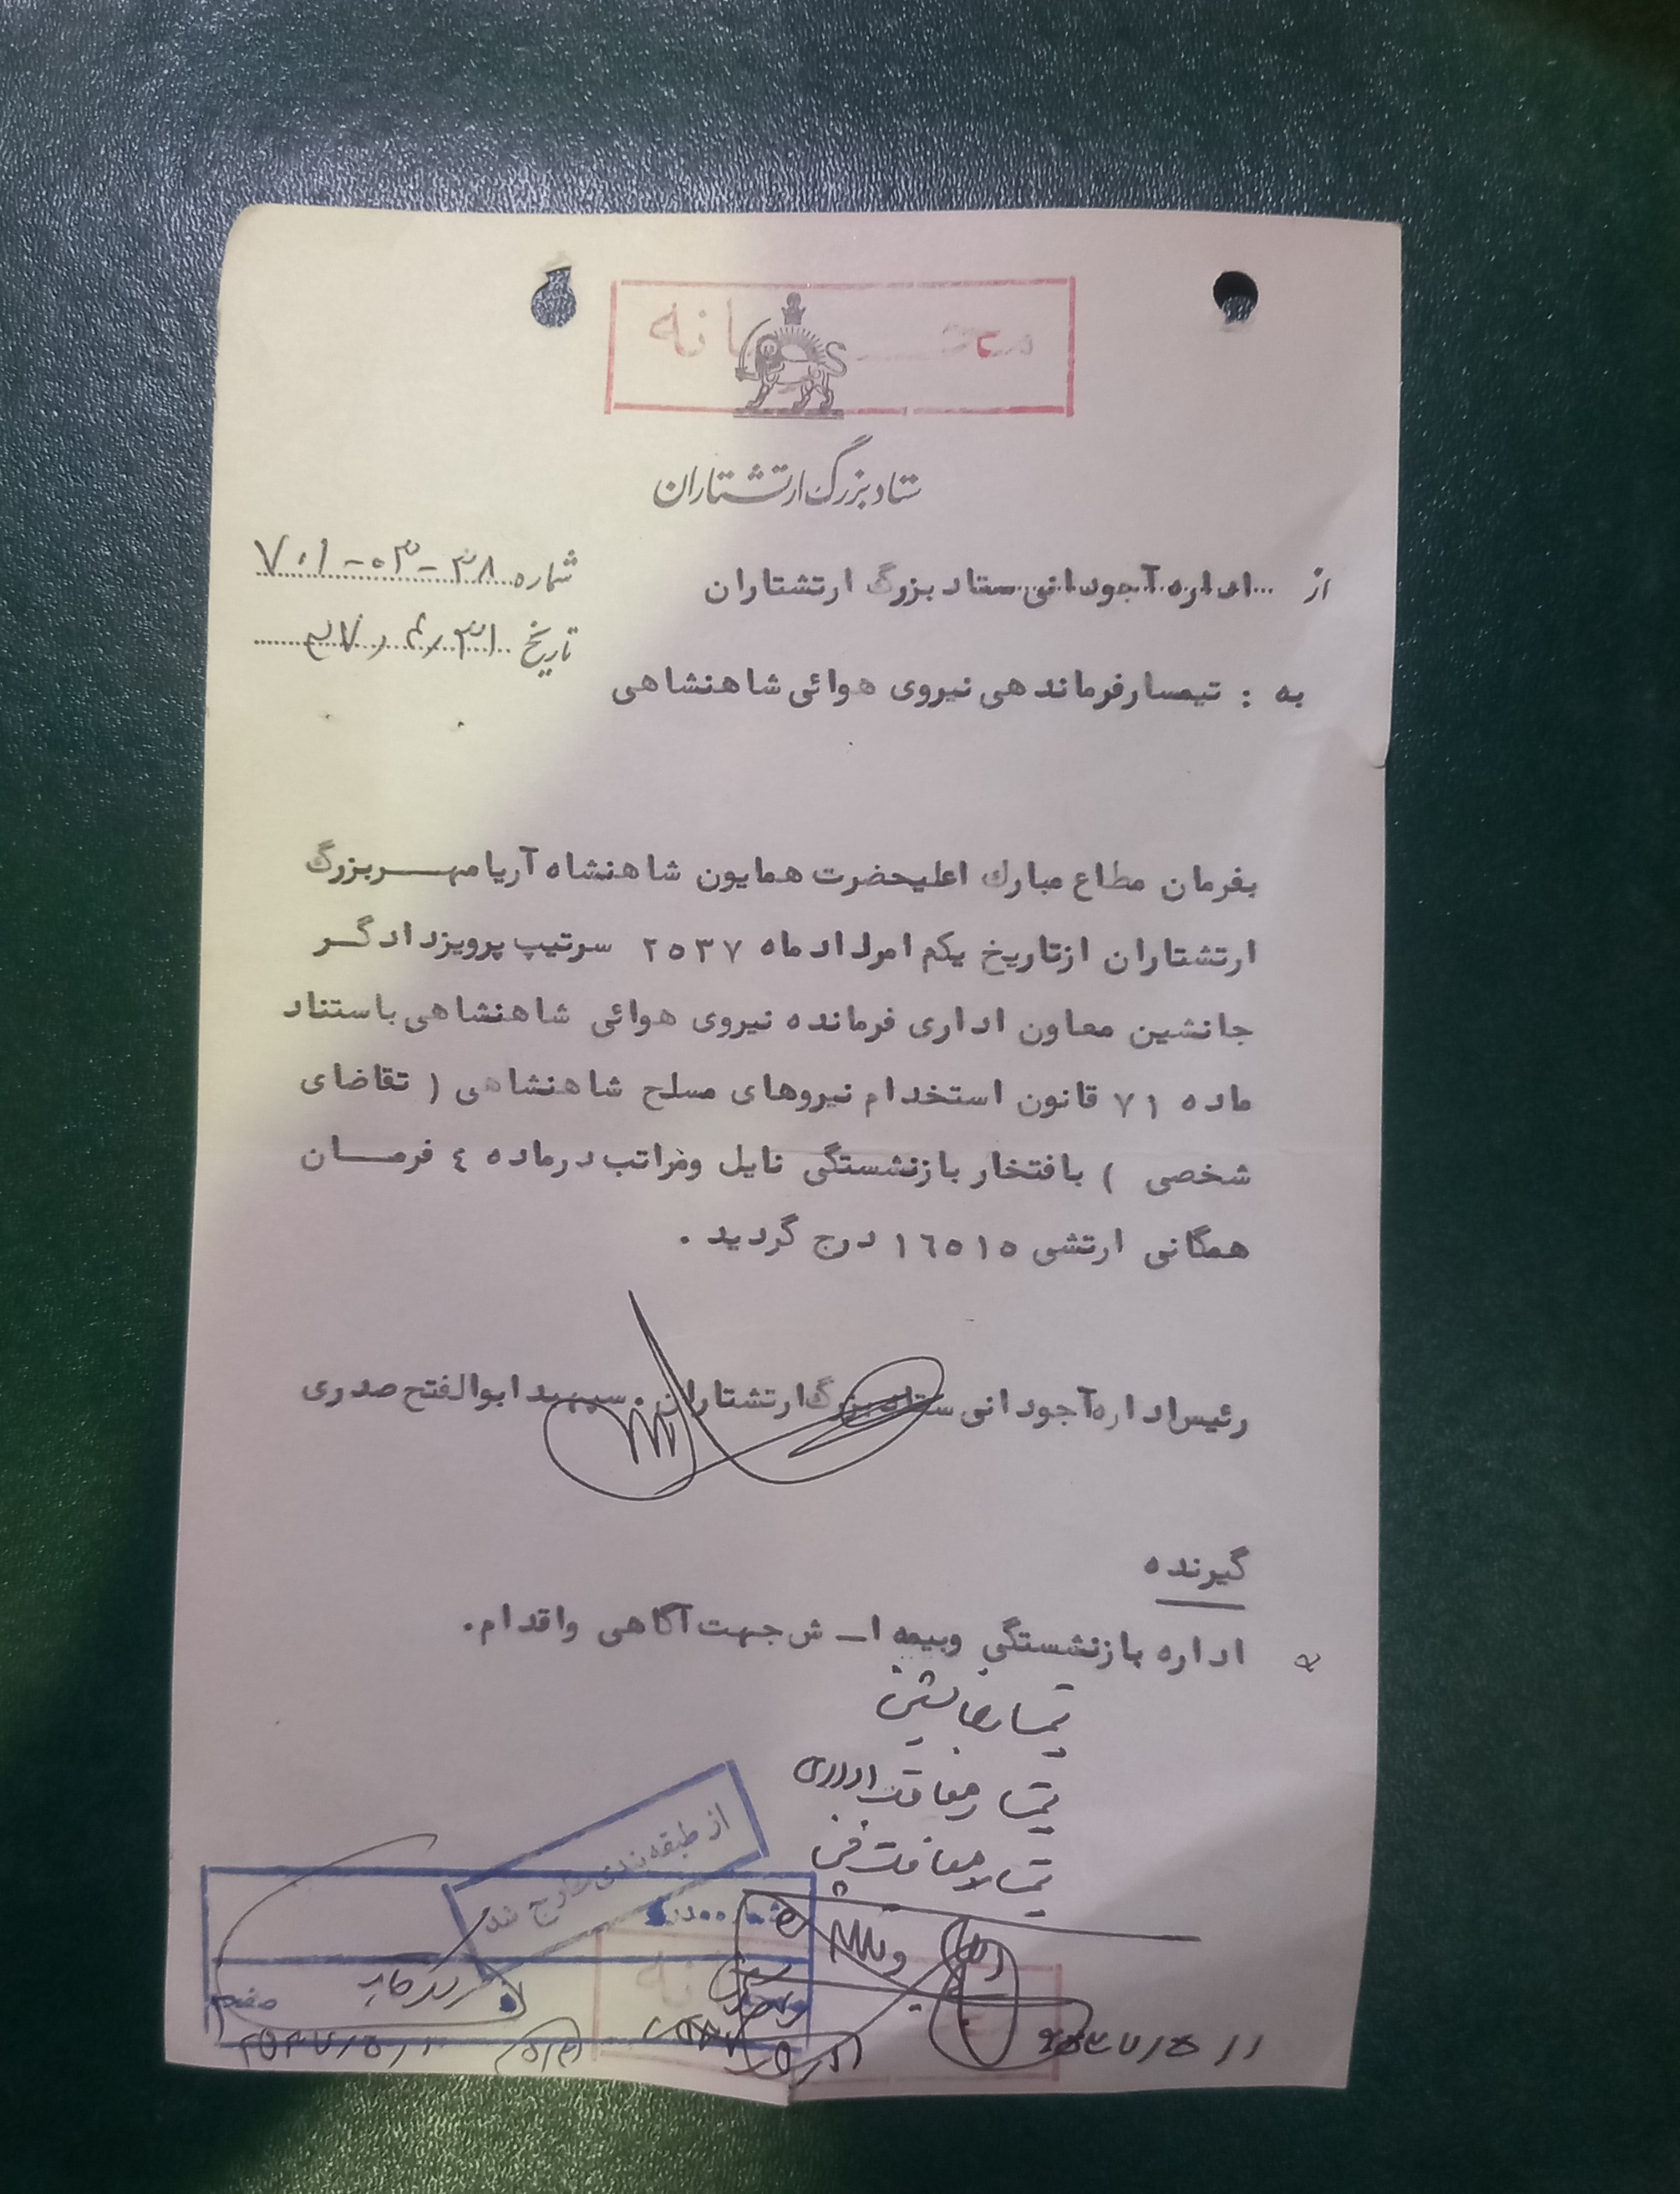 محرمانه
ستاد بزرگ ارتشتاران
از ... اداره آجودانی ستاد بزرگ ارتشتاران
شماره ۳۸-۰۳-۷۰۱
تاریخ ۳۷/۴/۳۱
به : تیمسار فرماندهی نیروی هوائی شاهنشاهی
بفرمان مطاع مبارك اعلیحضرت همایون شاهنشاه آریامهر بزرگ
ارتشتاران ازتاریخ یکم امرداد ماه ۲۵۳۷ سرتیپ پرویز دادگر
جانشین معاون اداری فرمانده نیروی هوائی شاهنشاهی باستناد
ماده ۷۱ قانون استخدام نیروهای مسلح شاهنشاهی ( تقاضای
شخصی ) بافتخار بازنشستگی نایل ومراتب درماده ٤ فرمان
همگانی ارتشی ۱٦٥۱٥ درج گردید .
رئیس اداره آجودانی ستاد بزرگ ارتشتاران . سپهبد ابوالفتح صدری
گیرنده
اداره بازنشستگی وبیمه ا ـ ش جهت آگاهی واقدام.
تیمسار جانشین
تیمسار معاونت اداری
تیمسار معاونت فنی
از طبقه بندی خارج شد
۲۵۳۷/۵/۱